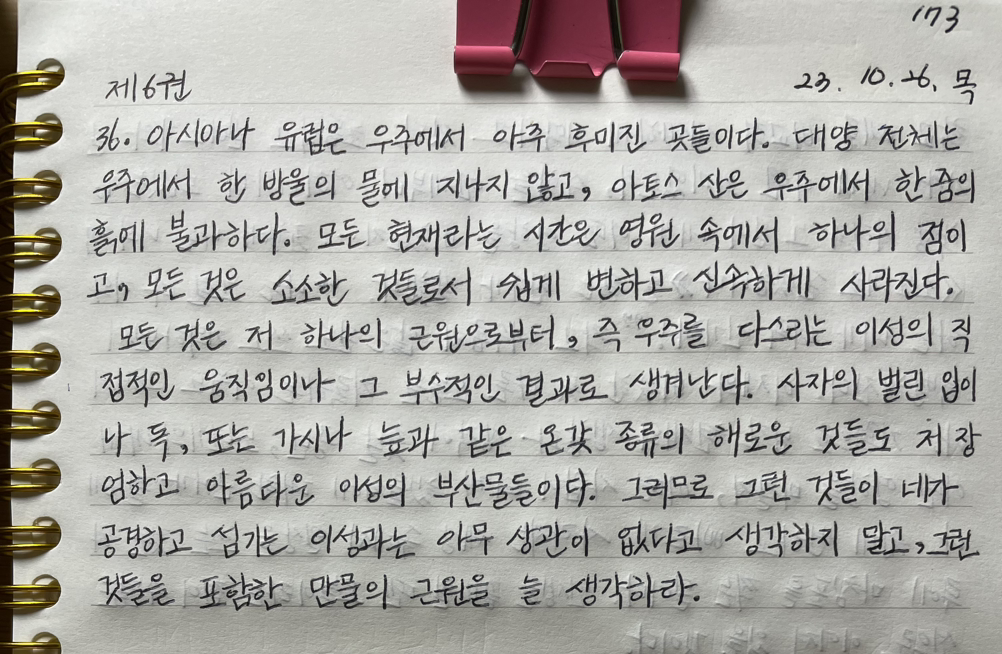 173
제6권 23. 10. 26. 목
36. 아시아나 유럽은 우주에서 아주 후미진 곳들이다. 대양 전체는
우주에서 한 방울의 물에 지나지 않고, 아토스 산은 우주에서 한 줌의
흙에 불과하다. 모든 현재라는 시간은 영원 속에서 하나의 점이
고, 모든 것은 소소한 것들로서 쉽게 변하고 신속하게 사라진다.
모든 것은 저 하나의 근원으로부터, 즉 우주를 다스리는 이성의 직
접적인 움직임이나 그 부수적인 결과로 생겨난다. 사자의 벌린 입이
나 독, 또는 가시나 늪과 같은 온갖 종류의 해로운 것들도 저 장
엄하고 아름다운 이성의 부산물들이다. 그러므로 그런 것들이 네가
공경하고 섬기는 이성과는 아무 상관이 없다고 생각하지 말고, 그런
것들을 포함한 만물의 근원을 늘 생각하라.